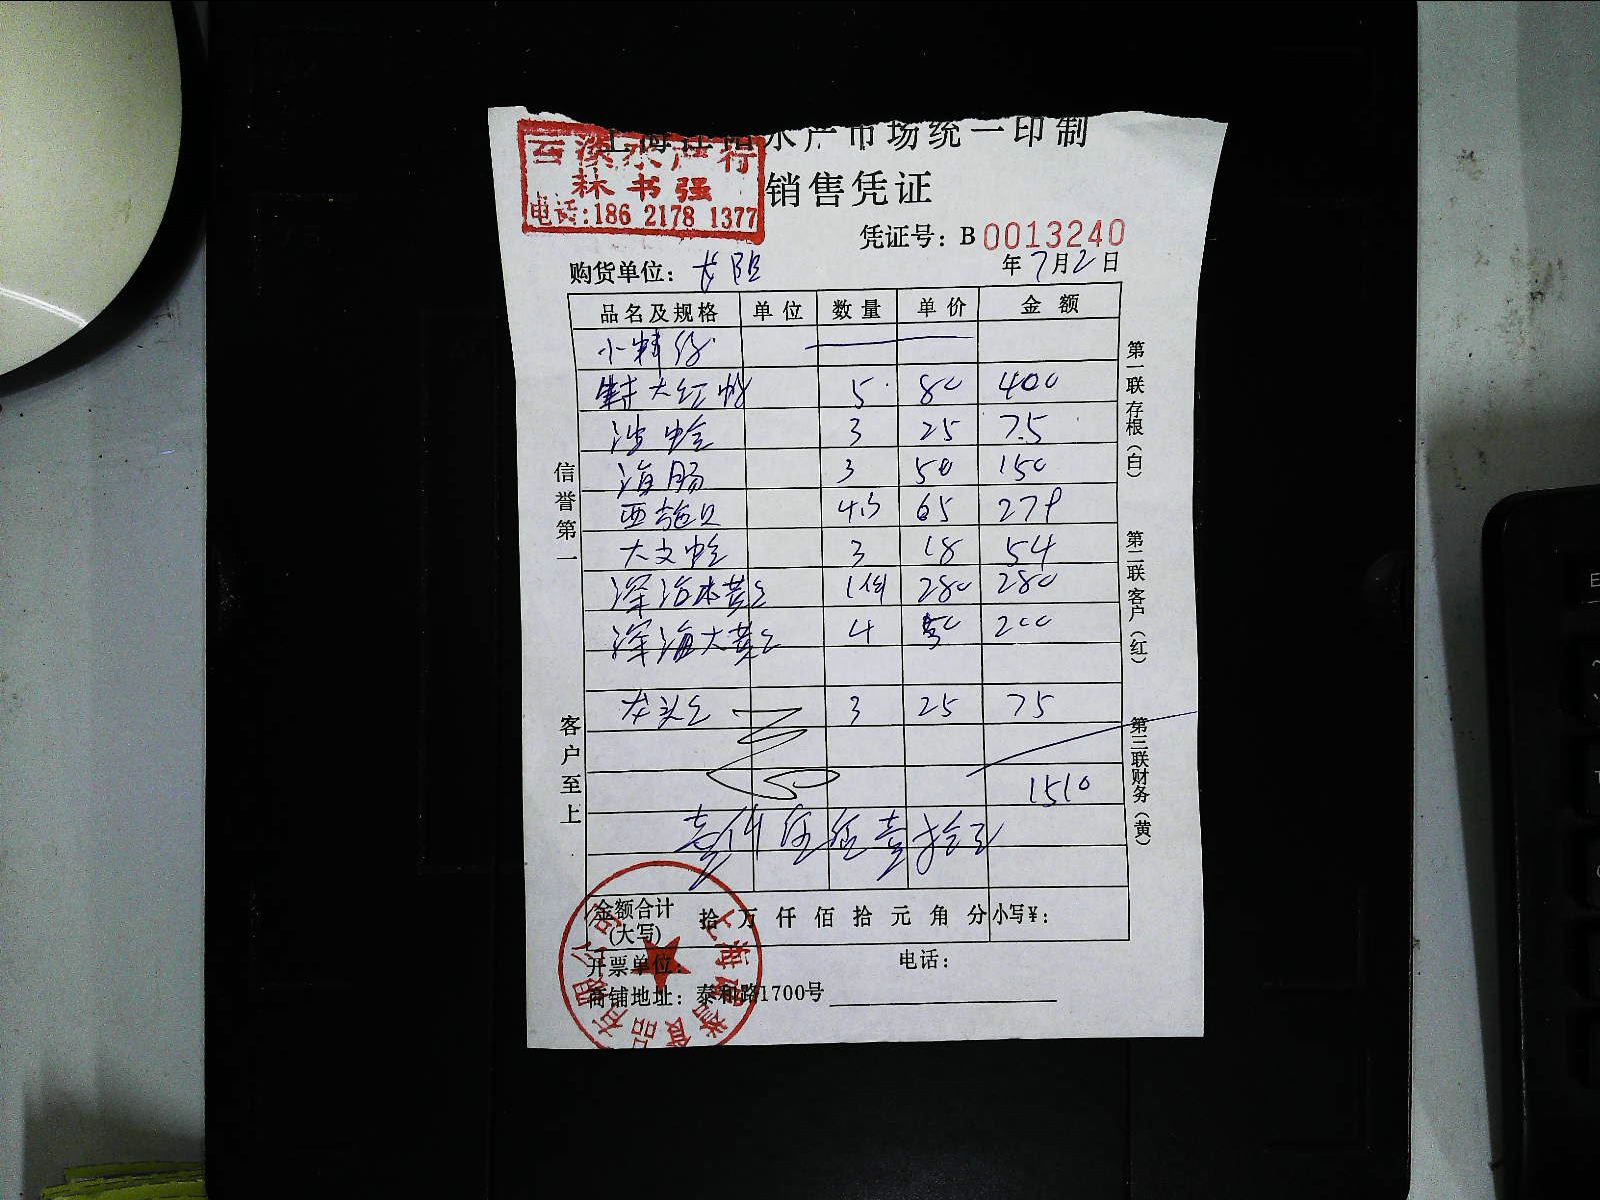 上海江阳水产市场统一印制
云溪水产行
林书强
电话:186 2178 1377
销售凭证
凭证号: B 0013240
购货单位:
年 7月2日
品名及规格 单位 数量 单价 金额
特大红 5 80 400
沙蛤 3 25 75
海肠 3 50 150
西施贝 4.3 65 279
大文蛤 3 18 54
280 280
深海大黄 4 50 200
龙头 3 25 75
1510
金额合计(大写) 拾 万 仟 佰 拾 元 角 分 小写¥:
开票单位: 电话:
商铺地址: 泰和路1700号
信誉第一
客户至上
第一联存根(白)
第二联客户(红)
第三联财务(黄)